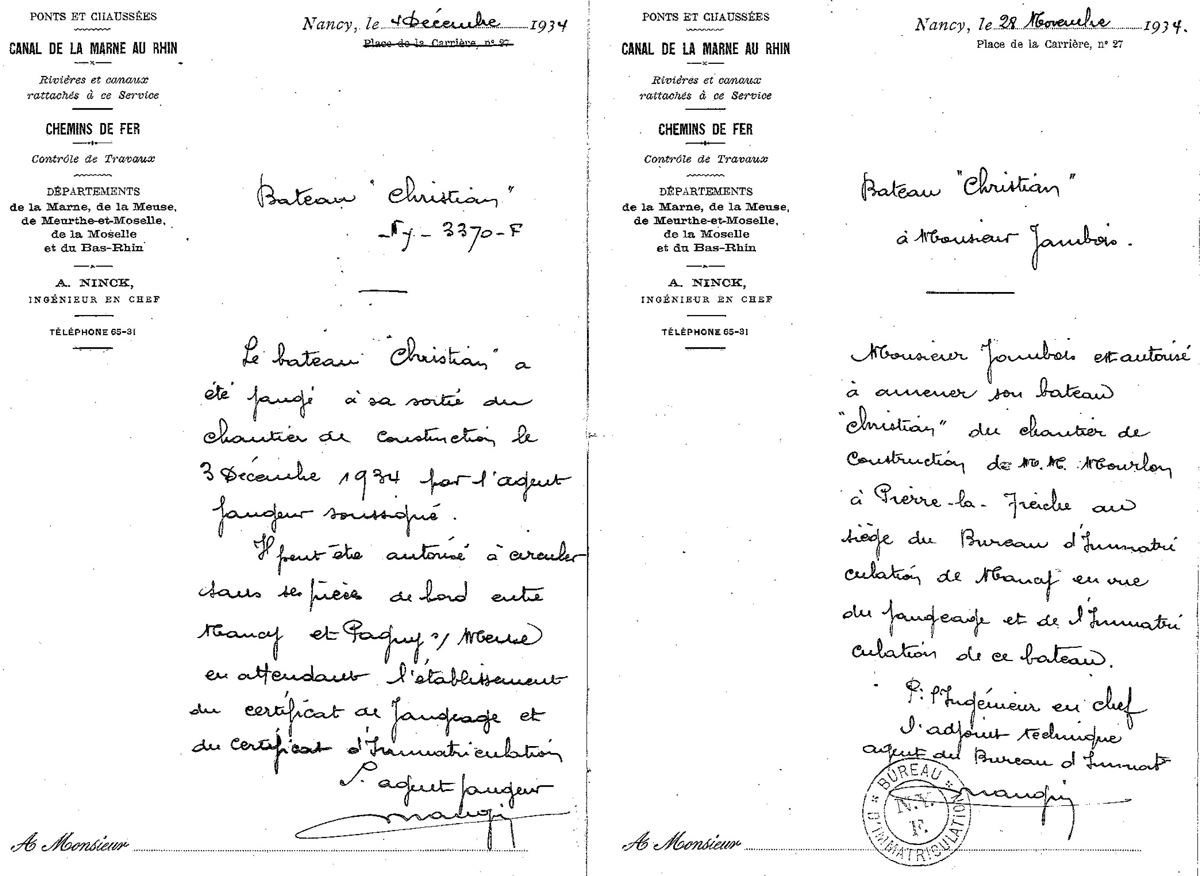 PONTS ET CHAUSSÉES
CANAL DE LA MARNE AU RHIN
Rivières et canaux
rattachés à ce Service
CHEMINS DE FER
Contrôle de Travaux
DÉPARTEMENTS
de la Marne, de la Meuse,
de Meurthe-et-Moselle,
de la Moselle
et du Bas-Rhin
A. NINCK,
INGÉNIEUR EN CHEF
TÉLÉPHONE 65-31
Nancy, le 4 Décembre 1934
Place de la Carrière, n° 27
Bateau "Christian"
- Ny - 3370 - F
Le bateau "Christian" a
été jaugé à sa sortie du
chantier de construction le
3 Décembre 1934 par l'agent
jaugeur soussigné.
Il peut être autorisé à circuler
sans ses pièces de bord entre
Nancy et Pagny s/ Meuse
en attendant l'établissement
du certificat de Jaugeage et
du certificat d'Immatriculation
L'agent jaugeur
Mangin
A Monsieur
PONTS ET CHAUSSÉES
CANAL DE LA MARNE AU RHIN
Rivières et canaux
rattachés à ce Service
CHEMINS DE FER
Contrôle de Travaux
DÉPARTEMENTS
de la Marne, de la Meuse,
de Meurthe-et-Moselle,
de la Moselle
et du Bas-Rhin
A. NINCK,
INGÉNIEUR EN CHEF
TÉLÉPHONE 65-31
Nancy, le 28 Novembre 1934.
Place de la Carrière, n° 27
Bateau "Christian"
à Monsieur Jambois.
Monsieur Jambois est autorisé
à amener son bateau
"Christian" du chantier de
Construction de M.M. Mourlon
à Pierre-la-Treiche au
siège du Bureau d'Immatri
culation de Nancy en vue
du jaugeage et de l'Immatri
culation de ce bateau.
P. l'Ingénieur en chef
l'adjoint technique
agent du Bureau d'Immat
Mangin
BUREAU D'IMMATRICULATION
N.Y.
F.
A Monsieur